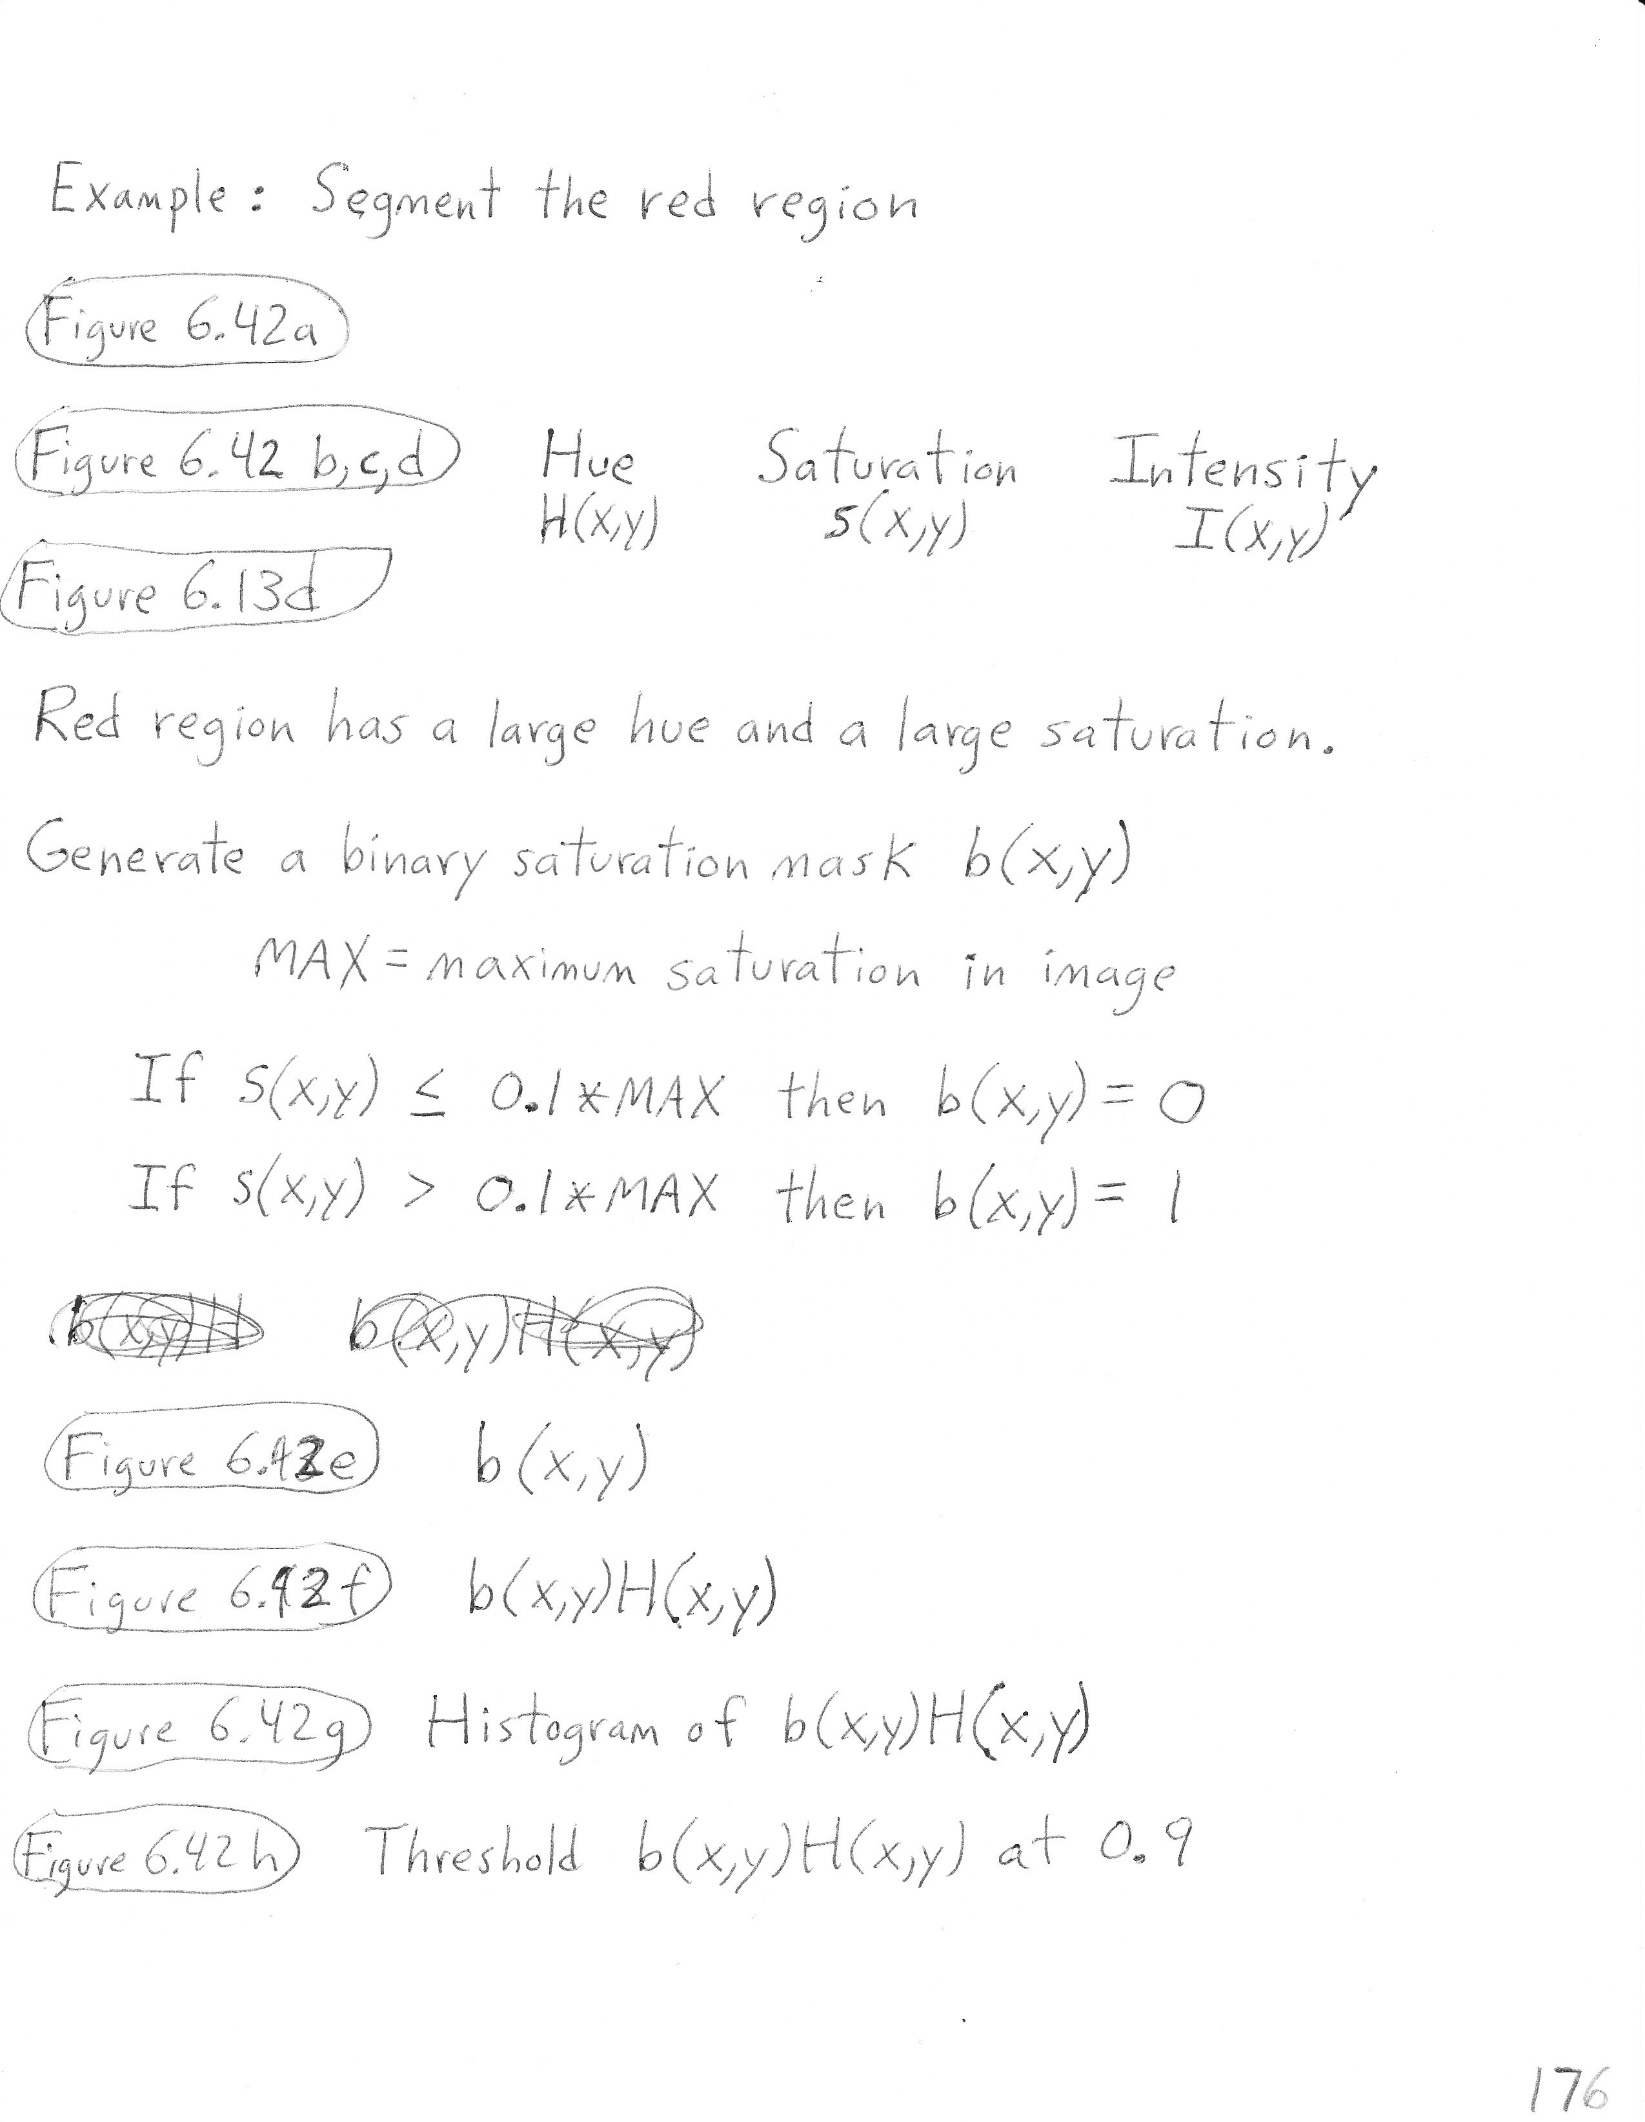 Example: Segment the red region
Figure 6.42a
Figure 6.42 b,c,d Hue Saturation Intensity
H(x,y) S(x,y) I(x,y)
Figure 6.13d
Red region has a large hue and a large saturation.
Generate a binary saturation mask b(x,y)
MAX = maximum saturation in image
If S(x,y) ≤ 0.1*MAX then b(x,y) = 0
If S(x,y) > 0.1*MAX then b(x,y) = 1
b(x,y)H b(x,y)H(x,y)
Figure 6.42e b(x,y)
Figure 6.42f b(x,y)H(x,y)
Figure 6.42g Histogram of b(x,y)H(x,y)
Figure 6.42h Threshold b(x,y)H(x,y) at 0.9
176